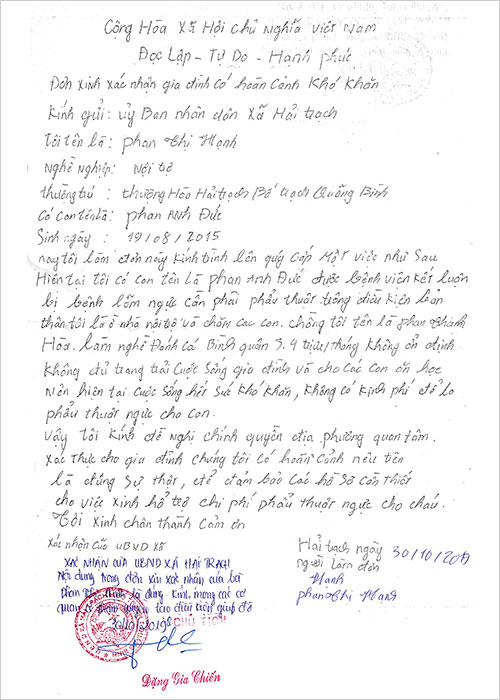 Cộng Hòa Xã Hội Chủ Nghĩa Việt Nam
Đọc Lập - Tự Do - Hạnh phúc
Đơn Xinh xác nhận gia đình có hoãn cảnh khó khăn
kính gửi: uỷ Ban nhân dân xã Hải trạch
Tôi tên là: phan Thị Hạnh
Nghề nghiệp: Nội trợ
thường trú: thượng Hòa Hải trạch Bố trạch Quảng Bình
Có con tên là: phan Anh Đức
Sinh ngày: 19/08/2015
nay tôi lầm đơn nầy kính trình lên quý cấp một việc như sau
Hiện tại tôi có con tên là phan Anh Đức được bệnh viện kết luận
bị bệnh lõm ngực cần phải phẩu thuật trong điều kiện bản
thân tôi là ở nhà nội trợ và chăm các con. chồng tôi tên là phan Thanh
Hòa. làm nghề Đánh cá Bình quân 3.4 triệu/tháng không ổn định
không đủ trang trải cuộc sống gia đình và cho các con ăn học
nên hiện tại cuộc sống hết sức khó khăn, không có kinh phí để lo
phẩu thuật ngực cho con.
vậy tôi kính đề nghị chính quyền địa phương quan tâm.
xác thực cho gia đình chúng tôi có hoãn cảnh nêu trên
là đúng sự thật, để đảm bảo các hồ sơ cần thiết
cho việc xinh hỗ trợ chi phí phẩu thuật ngực cho cháu.
Tôi xinh chân thành cảm ơn
Xác nhận của UBND xã
Hải trạch ngày 30/10/201
người làm đơn
Hạnh
phan Thị Hạnh
XÁC NHẬN CỦA UBND XÃ HẢI TRẠCH
Nội dung trong đơn xin xác nhận của bà
phan Thị Hạnh là đúng. Kính mong các cơ
quan có thẩm quyền tạo điều kiện giúp đỡ
30/10/2019
CHỦ TỊCH
Đặng Gia Chiến